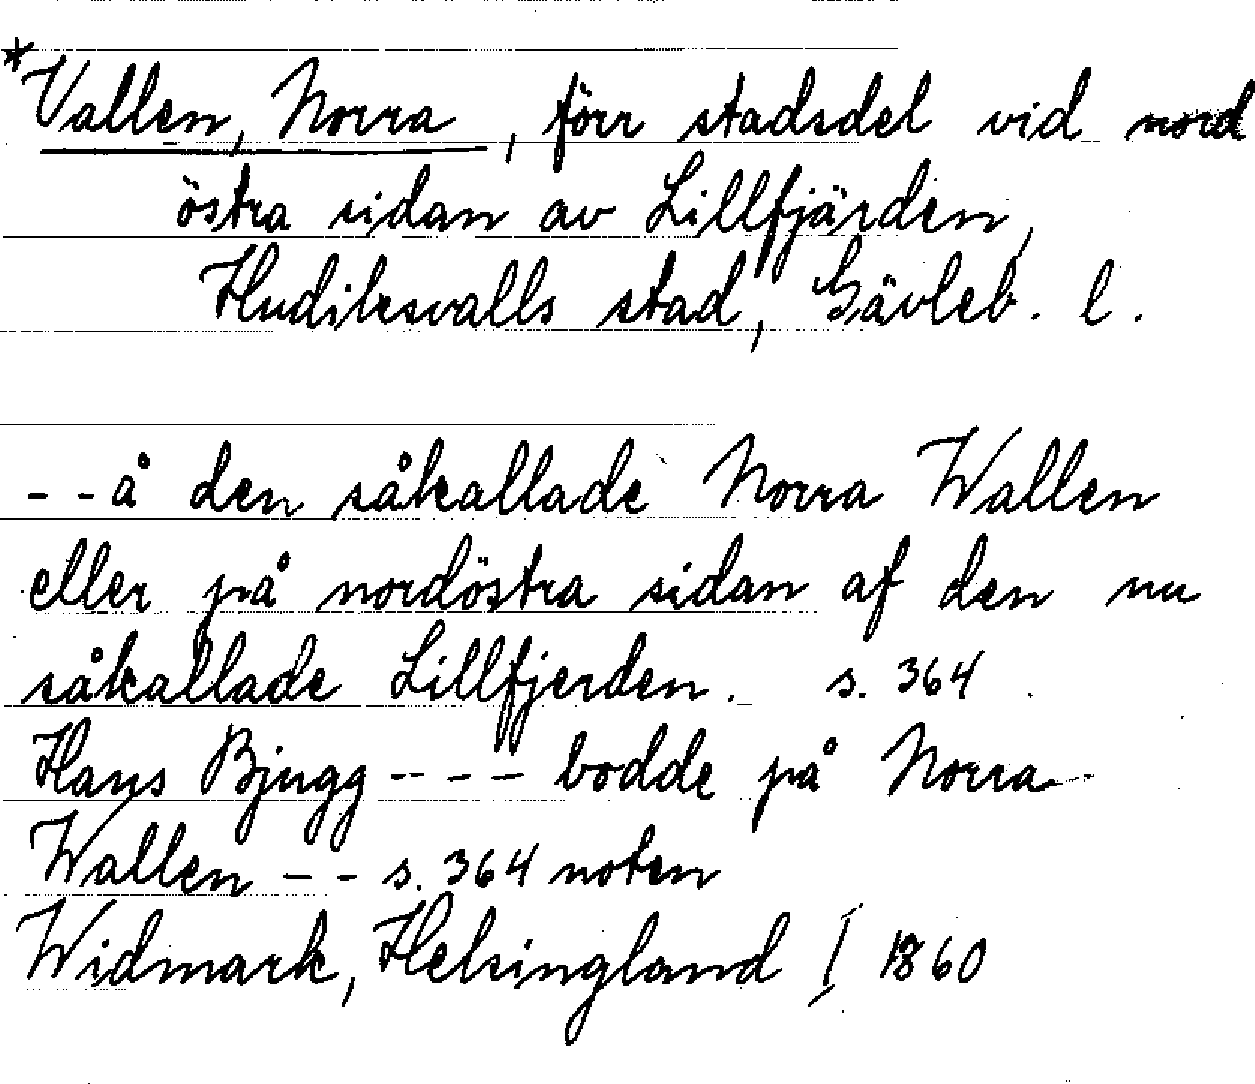 *Vallen, Norra, förr stadsdel vid nord
östra sidan av Lillfjärden,
Hudiksvalls stad, Gävleb. l.
--å den såkallade Norra Wallen
eller på nordöstra sidan af den nu
såkallade Lillfjerden. s. 364.
Hans Bjugg ---- bodde på Norra
Wallen -- s. 364 noten
Widmark, Helsingland I 1860